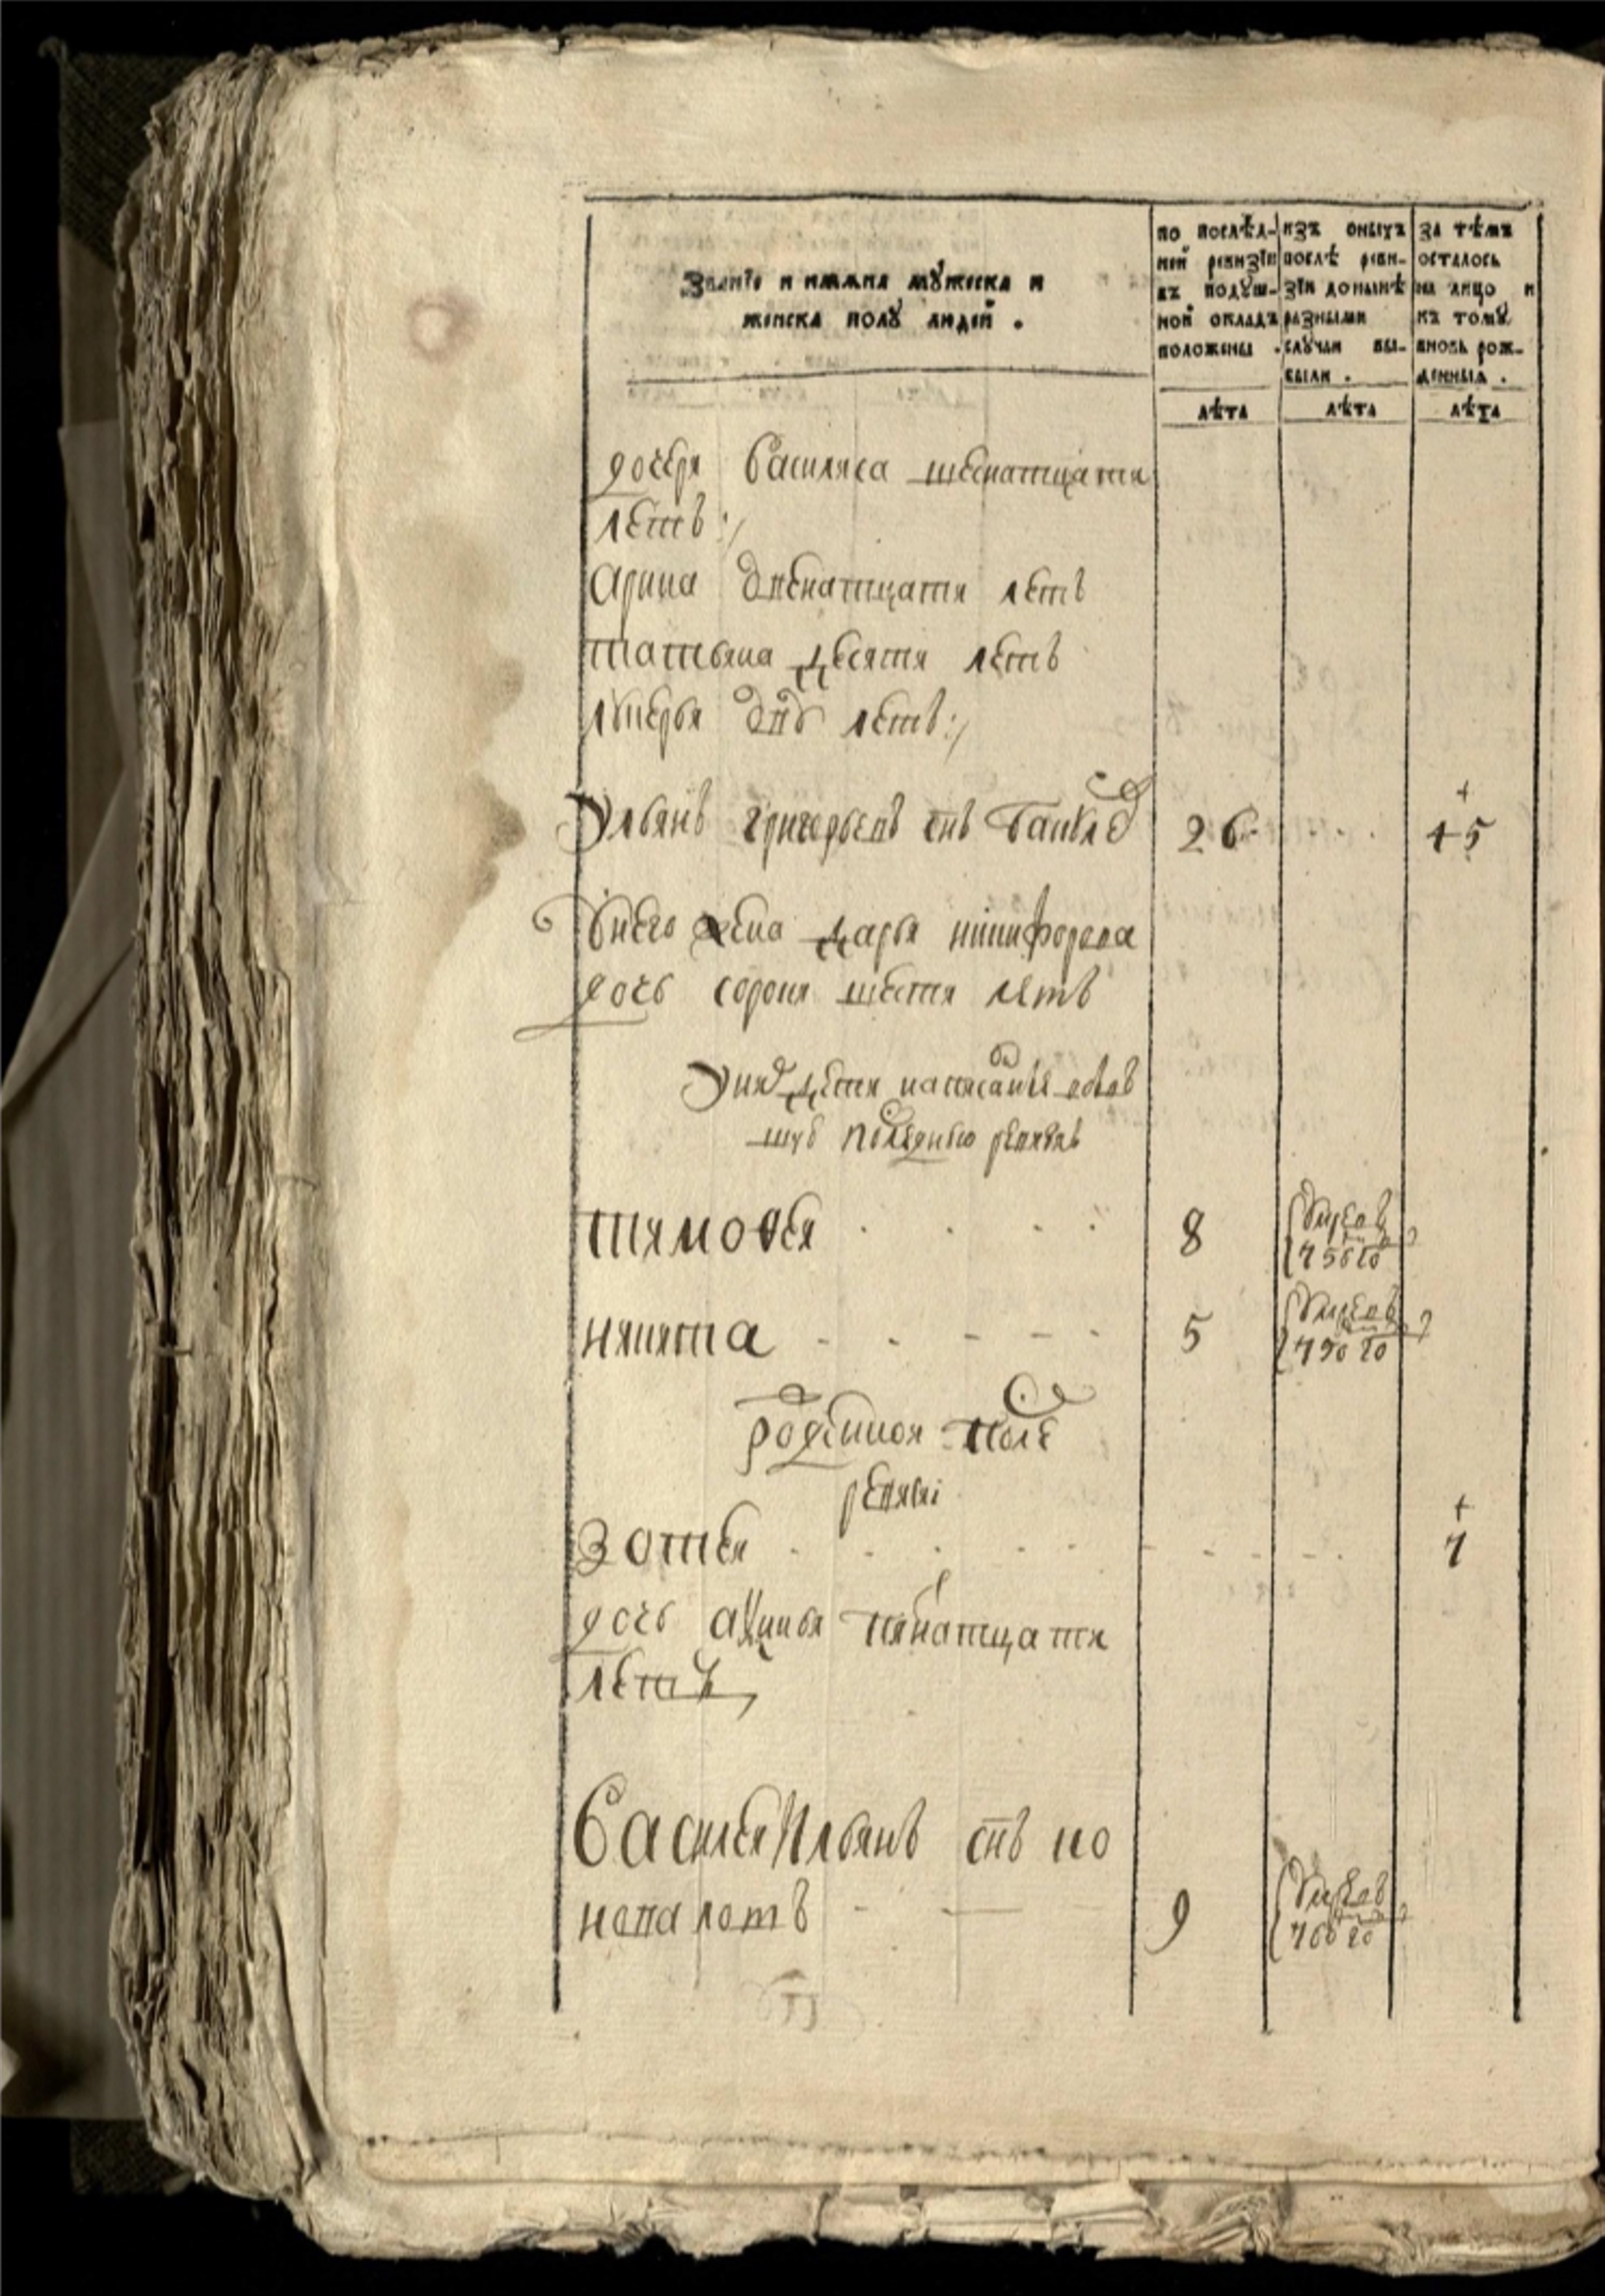 Званіе и имяна мужеска и
женска полу людей .
по послѣд-
ней ревизіи
въ подуш-
ной окладъ
положены .
изъ оныхъ
послѣ реви-
зіи донынѣ
разными
случаи вы-
были .
за тѣмъ
осталось
на лицо и
къ тому
вновь рож-
денныя .
лѣта
лѣта
лѣта
дочеря василиса шеснатцати
летъ :/
Арина двенатцати летъ
татьяна десяти летъ
лукерья дву летъ :/
Ульянъ григорьевъ снъ 26 45
унего жена дарья никифорова
дочь сорока шести летъ
Уних дети написаные
последнюю
тимофеи 8 756 го
никита 5 750 го
рожденной после
ревизиі
Зотеи 7
дочь аксинья пятнатцати
летъ
Василеи Ульянъ снъ ко
новаловъ 9 760 го